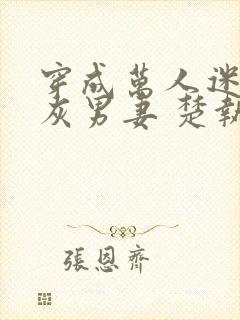 穿成萬人迷
灰男妻 楚執
張恩齊